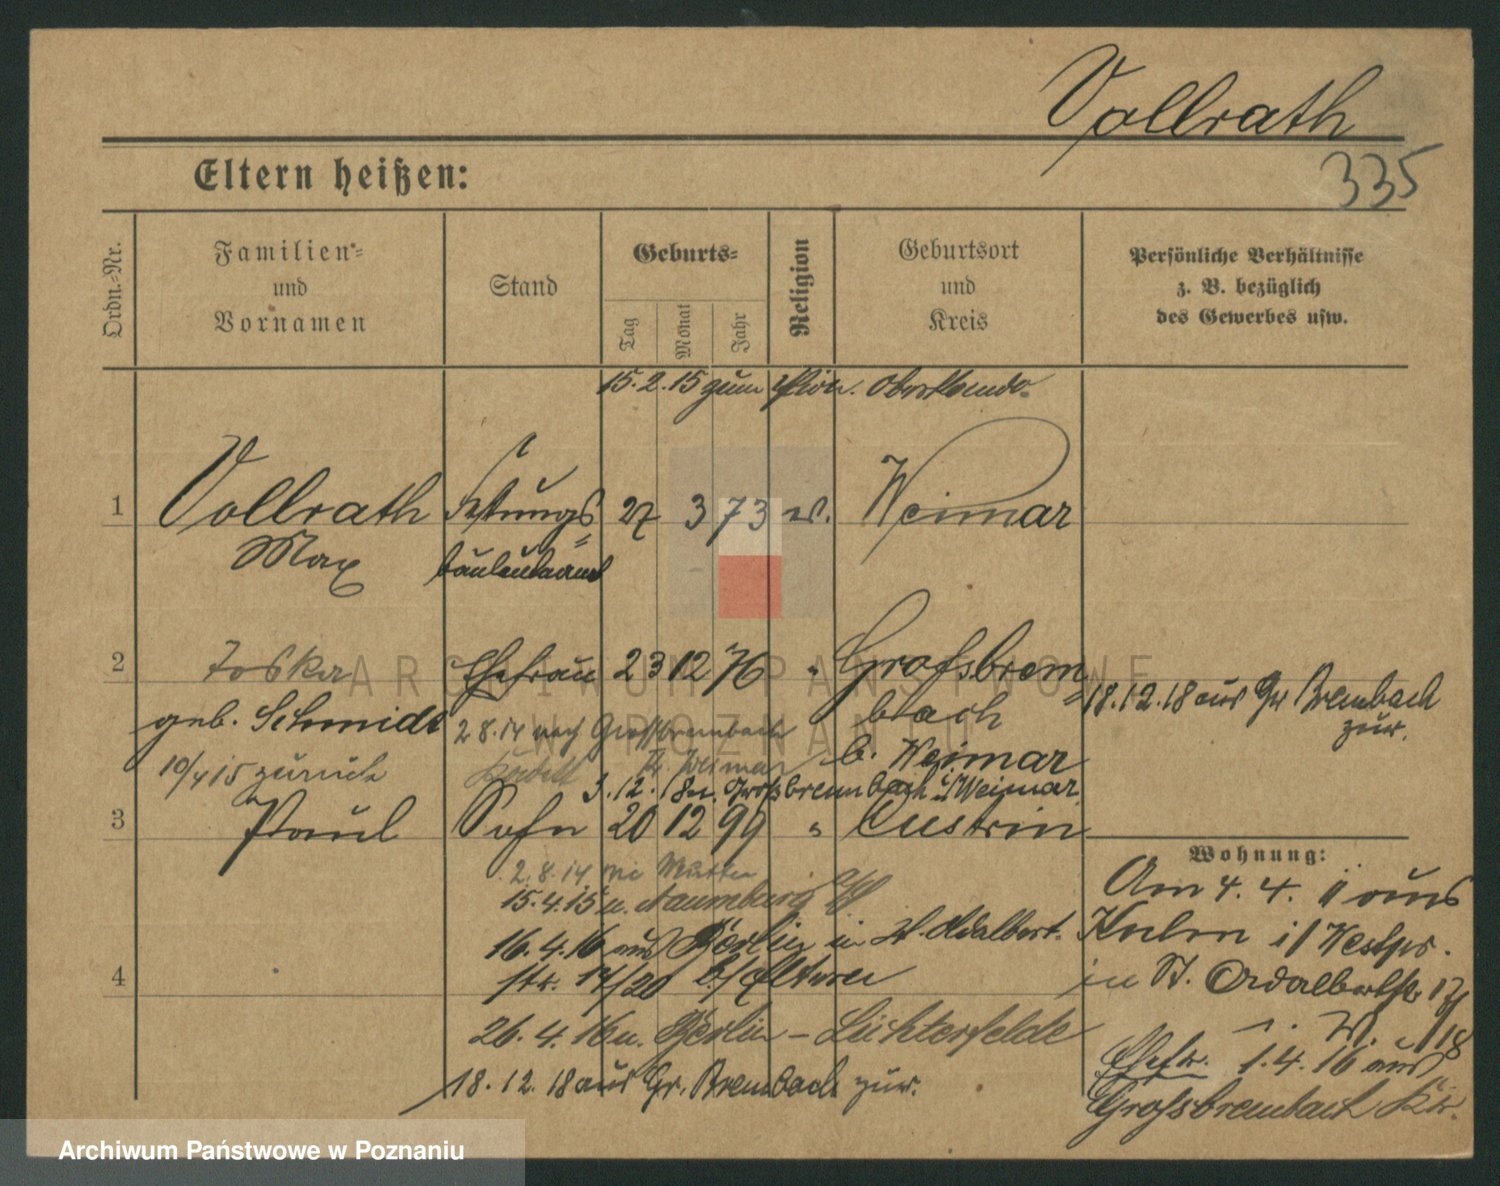 Vollrath
335
Eltern heißen:
Ordn.-Nr.
Familien- und Vornamen
Stand
Geburts-
Tag
Monat
Jahr
Religion
Geburtsort und Kreis
Persönliche Verhältnisse
z. B. bezüglich
des Gewerbes usw.
15. 2. 15 zum
1 Vollrath Festungs 27 3 73 ev. Weimar
Max
2 Toska Ehefrau 23 12 76 " Großbrem
geb. Schmidt
bach
b. Weimar
2 8. 14 nach Großbrembach
Kr. Weimar
10/4 15 zurück
3. 12. 18 n. Großbrembach i. Weimar
18. 12. 18 aus Gr Brembach
zur.
3 Paul Sohn 20 12 99 " Custrin
2. 8. 14 mit Mutter
15. 4. 15 n. Naumburg
16. 4. 16 aus Berlin in St. Adalbert.
str. 17/20 b./Eltern
4
26. 4. 16 n. Berlin – Lichterfelde
18. 12. 18 aus Gr. Brembach zur.
Wohnung:
Am 4. 4. 11 aus
Kulm i/ Westpr.
in St. Adalbertstr 17/18
Ehefr. 1. 4. 16 aus
Großbrembach Kr.
ARCHIWUM PAŃSTWOWE
W POZNANIU
Archiwum Państwowe w Poznaniu